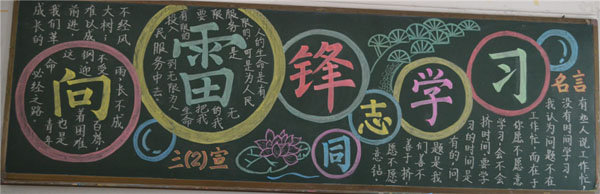 向雷锋同志学习
不经风雨,长不成
大树;不受百炼
难以成钢迎着困难
前进,也是
我们革命青年
成长的必经之路。
人的生命是有
限的,可是为人民
服务是无
限的我
要把我
有限的生命
投入到无限为人
民服务中去。
三(2)宣
名言
有些人说工作忙
没有时间学习,
我认为问题不在
工作忙,而在于
你愿不愿意
学习会不会
挤时间,要学
习的时间是
有的,问
题是我
们善不
善于挤
愿不愿
意钻